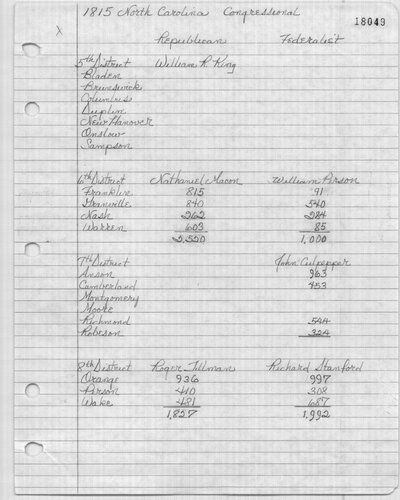 1815 North Carolina Congressional
18049
X
Republican Federalist
5th District William R King
Bladen
Brunswick
Columbus
Duplin
New Hanover
Onslow
Sampson
6th District Nathaniel Macon William Person
Franklin 815 91
Granville 840 540
Nash 262 284
Warren 603 85
2,520 1,000
7th District John Culpepper
Anson 963
Cumberland 453
Montgomery
Moore
Richmond 544
Robeson 324
8th District Roger Tillman Richard Stanford
Orange 936 997
Person 410 308
Wake 481 687
1,827 1,992